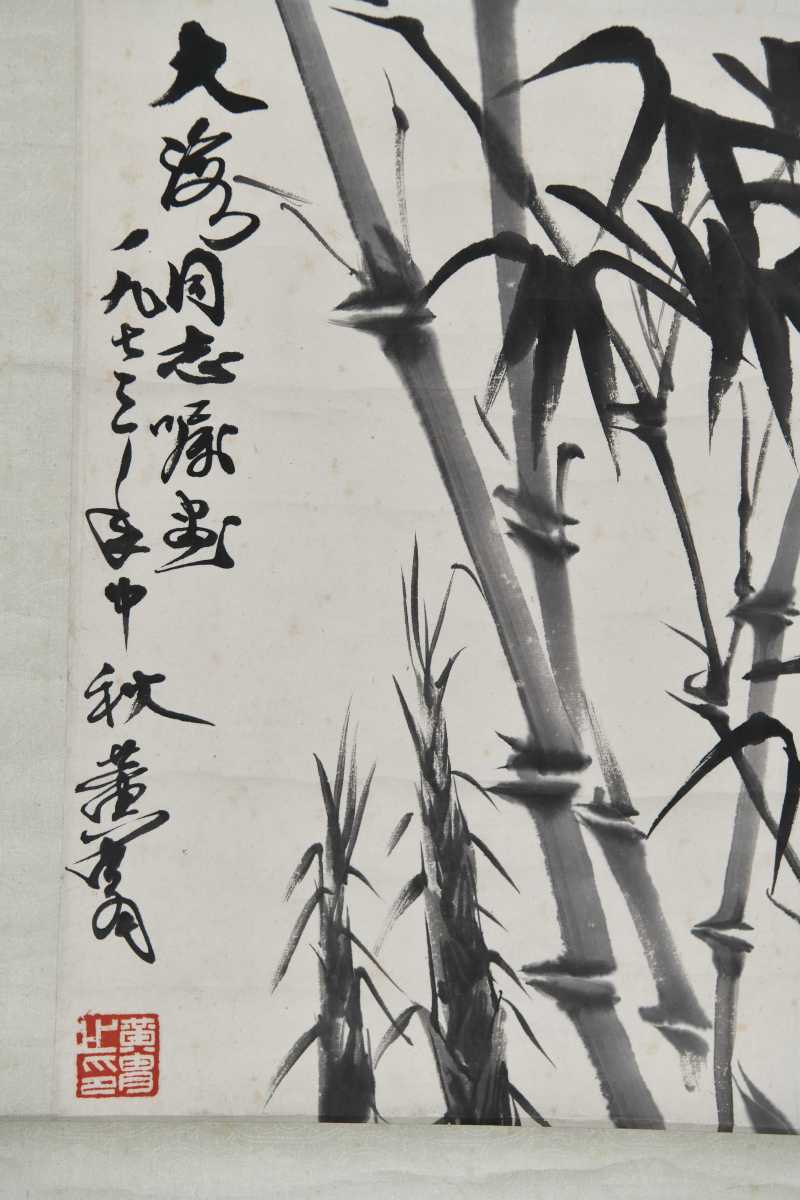 大海同志嘱画
一九七三年中秋黄胄
黄胄之印